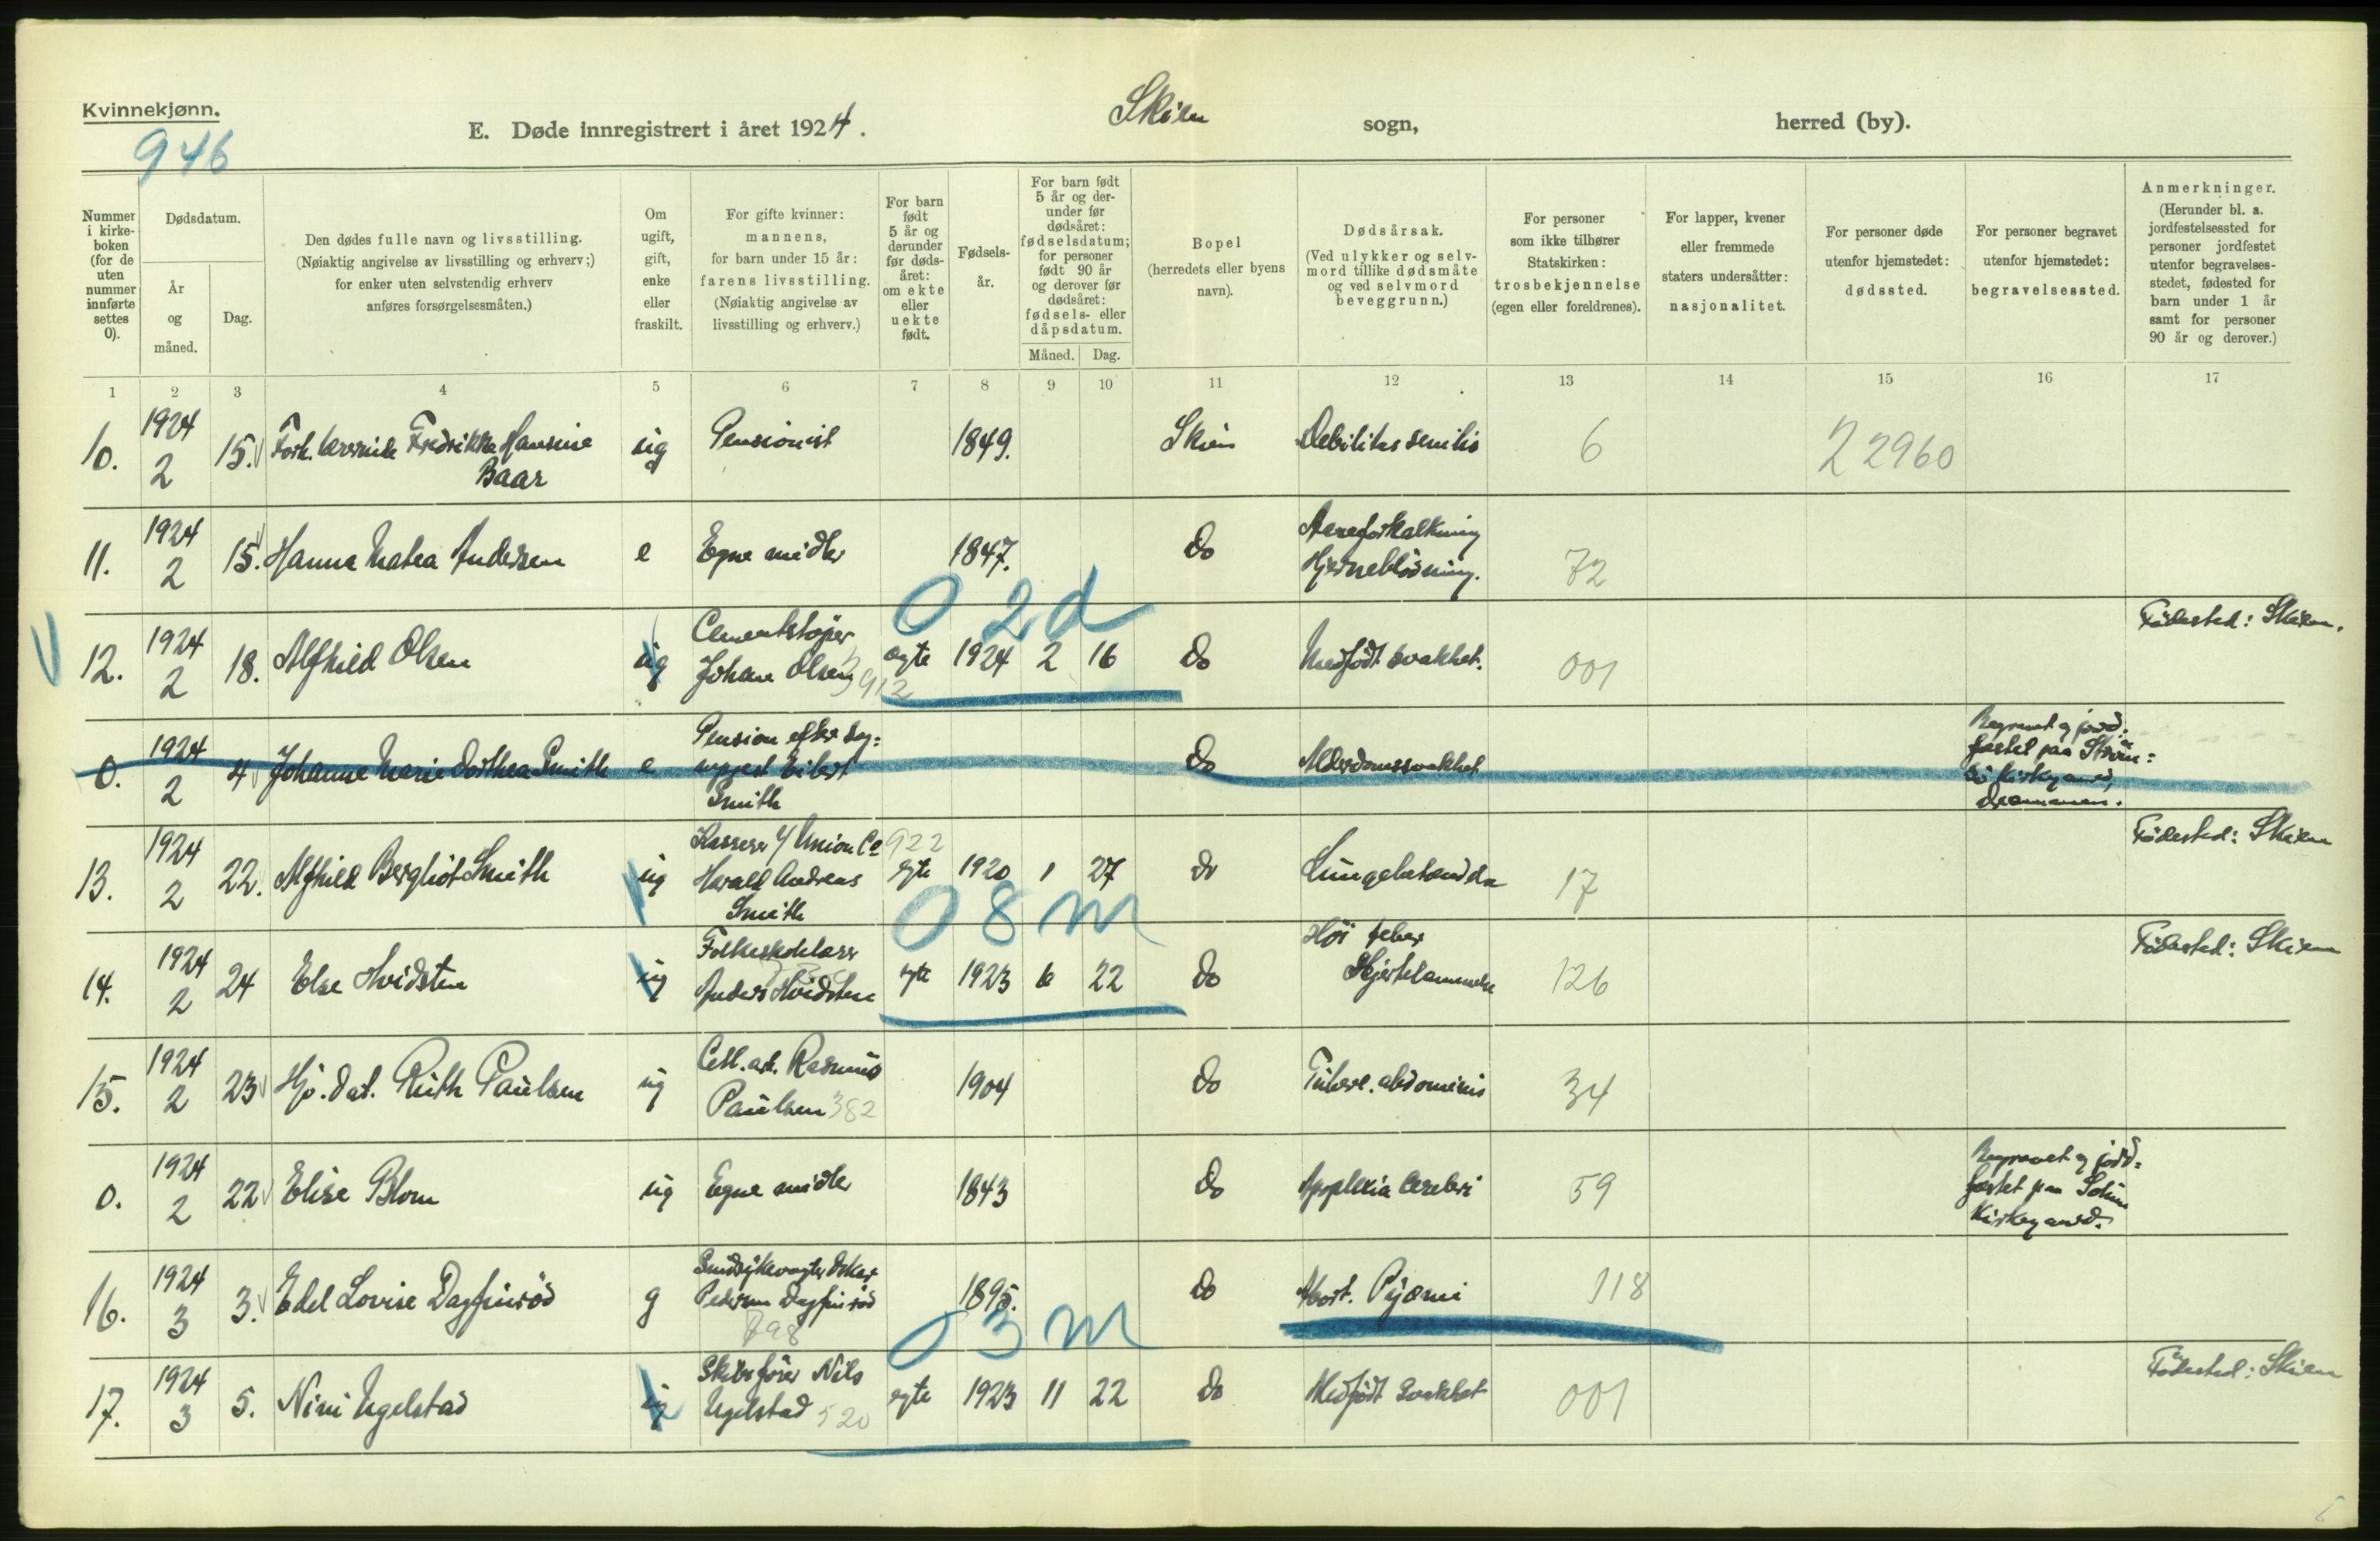 Kvinnekjønn.
946
E. Døde innregistrert i året 1924. Skien sogn, herred (by).
Nummer i kirke- boken (for de uten nummer innførte settes 0).
Dødsdatum.
År og måned.
Dag.
Den dødes fulle navn og livsstilling.
(Nøiaktig angivelse av livsstilling og erhverv;)
for enker uten selvstendig erhverv
anføres forsørgelsesmåten.)
Om ugift, gift, enke eller fraskilt.
For gifte kvinner: mannens, for barn under 15 år: farens livsstilling. (Nøiaktig angivelse av livsstilling og erhverv.)
For barn født 5 år og derunder før døds- året: om ekte eller uekte født.
Fødsels- år.
For barn født 5 år og der- under før dødsåret: fødselsdatum; for personer født 90 år og derover før dødsåret: fødsels- eller dåpsdatum.
Måned. Dag.
Bopel (herredets eller byens navn).
Dødsårsak. (Ved ulykker og selv- mord tillike dødsmåte og ved selvmord beveggrunn.)
For personer som ikke tilhører Statskirken: trosbekjennelse (egen eller foreldrenes).
For lapper, kvener eller fremmede staters undersåtter: nasjonalitet.
For personer døde utenfor hjemstedet: dødssted.
For personer begravet utenfor hjemstedet: begravelsessted.
Anmerkninger. (Herunder bl. a. jordfestelsessted for personer jordfestet utenfor begravelses- stedet, fødested for barn under 1 år samt for personer 90 år og derover.)
1 2 3 4 5 6 7 8 9 10 11 12 13 14 15 16 17
10. 1924 2 15. Fredrikke Hansine Baar ug Pensionist 1849. Skien Debilitas senilis 6 22960
11. 1924 2 15. Hanna Matea Andersen e Egne midler 1847. do Aareforkalkning Hjerneblødning. 72
02d
12. 1924 2 18. Alfhild Olsen ug Cementstøper Johan Olsen 912 ægte 1924 2 16 do Medfødt svakhet. 001 Fødested: Skien.
0. 1924 2 4 Johanne Marie Dorthea Smith e Pension efter Eilert Smith do Alderdomssvakhet Begravet og jord- fæstet paa Strøm- sø kirkegaard, Drammen.
13. 1924 2 22. Alfhild Bergliot Smith ug Kasserer v/ Union Co Harald Andreas Smith 922 egte 1920 1 27 do Lungebetændelse 17 Fødested: Skien
08m
14. 1924 2 24 Else Hvidsten ug Folkeskolelærer Anders Hvidsten egte 1923 6 22 do Høi feber Hjertelammelse 126 Fødested: Skien
15. 1924 2 23 Hjv. dat. Ruth Paulsen ug Cell. arb. Rasmus Paulsen 382 1904 do Tuberc. abdominis 34
0. 1924 2 22 Elise Blom ug Egne midler 1843 do Apoplexia cerebri 59 Begravet og jord- fæstet paa Solum Kirkegaard.
16. 1924 3 3. Edel Lovise Dagfinrød g Oskar Pedersen Dagfinrød 798 1895. do Abort. Pyæmi 118
03m
17. 1924 3 5. Nini Ugelstad ug Skibsfører Nils Ugelstad 520 egte 1923 11 22 do Medfødt svakhet 001 Fødested: Skien